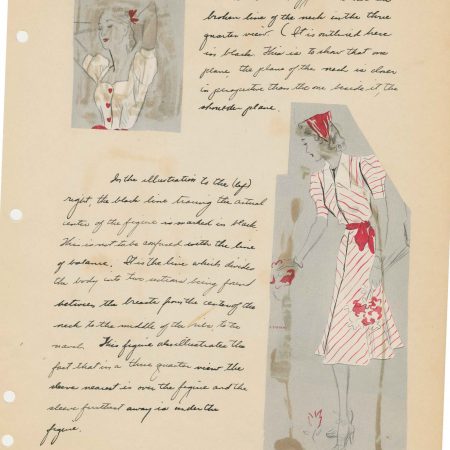 broken line of the neck in the three
quarter view. (It is outlined here
in black. This is to show that one
plane, the plane of the neck is closer
in perspective than the one beside it, the
shoulder plane.
In the illustration to the (left)
right, the black line tracing the actual
center of the figure is marked in black.
This is not to be confused with the line
of balance. It is the line which divides
the body into two sections being found
between the breasts from the center of the
neck to the middle of the to the
This figure also illustrates the
fact that in a three quarter view the
sleeve nearest is over the figure and the
sleeve furthest away is under the
figure.